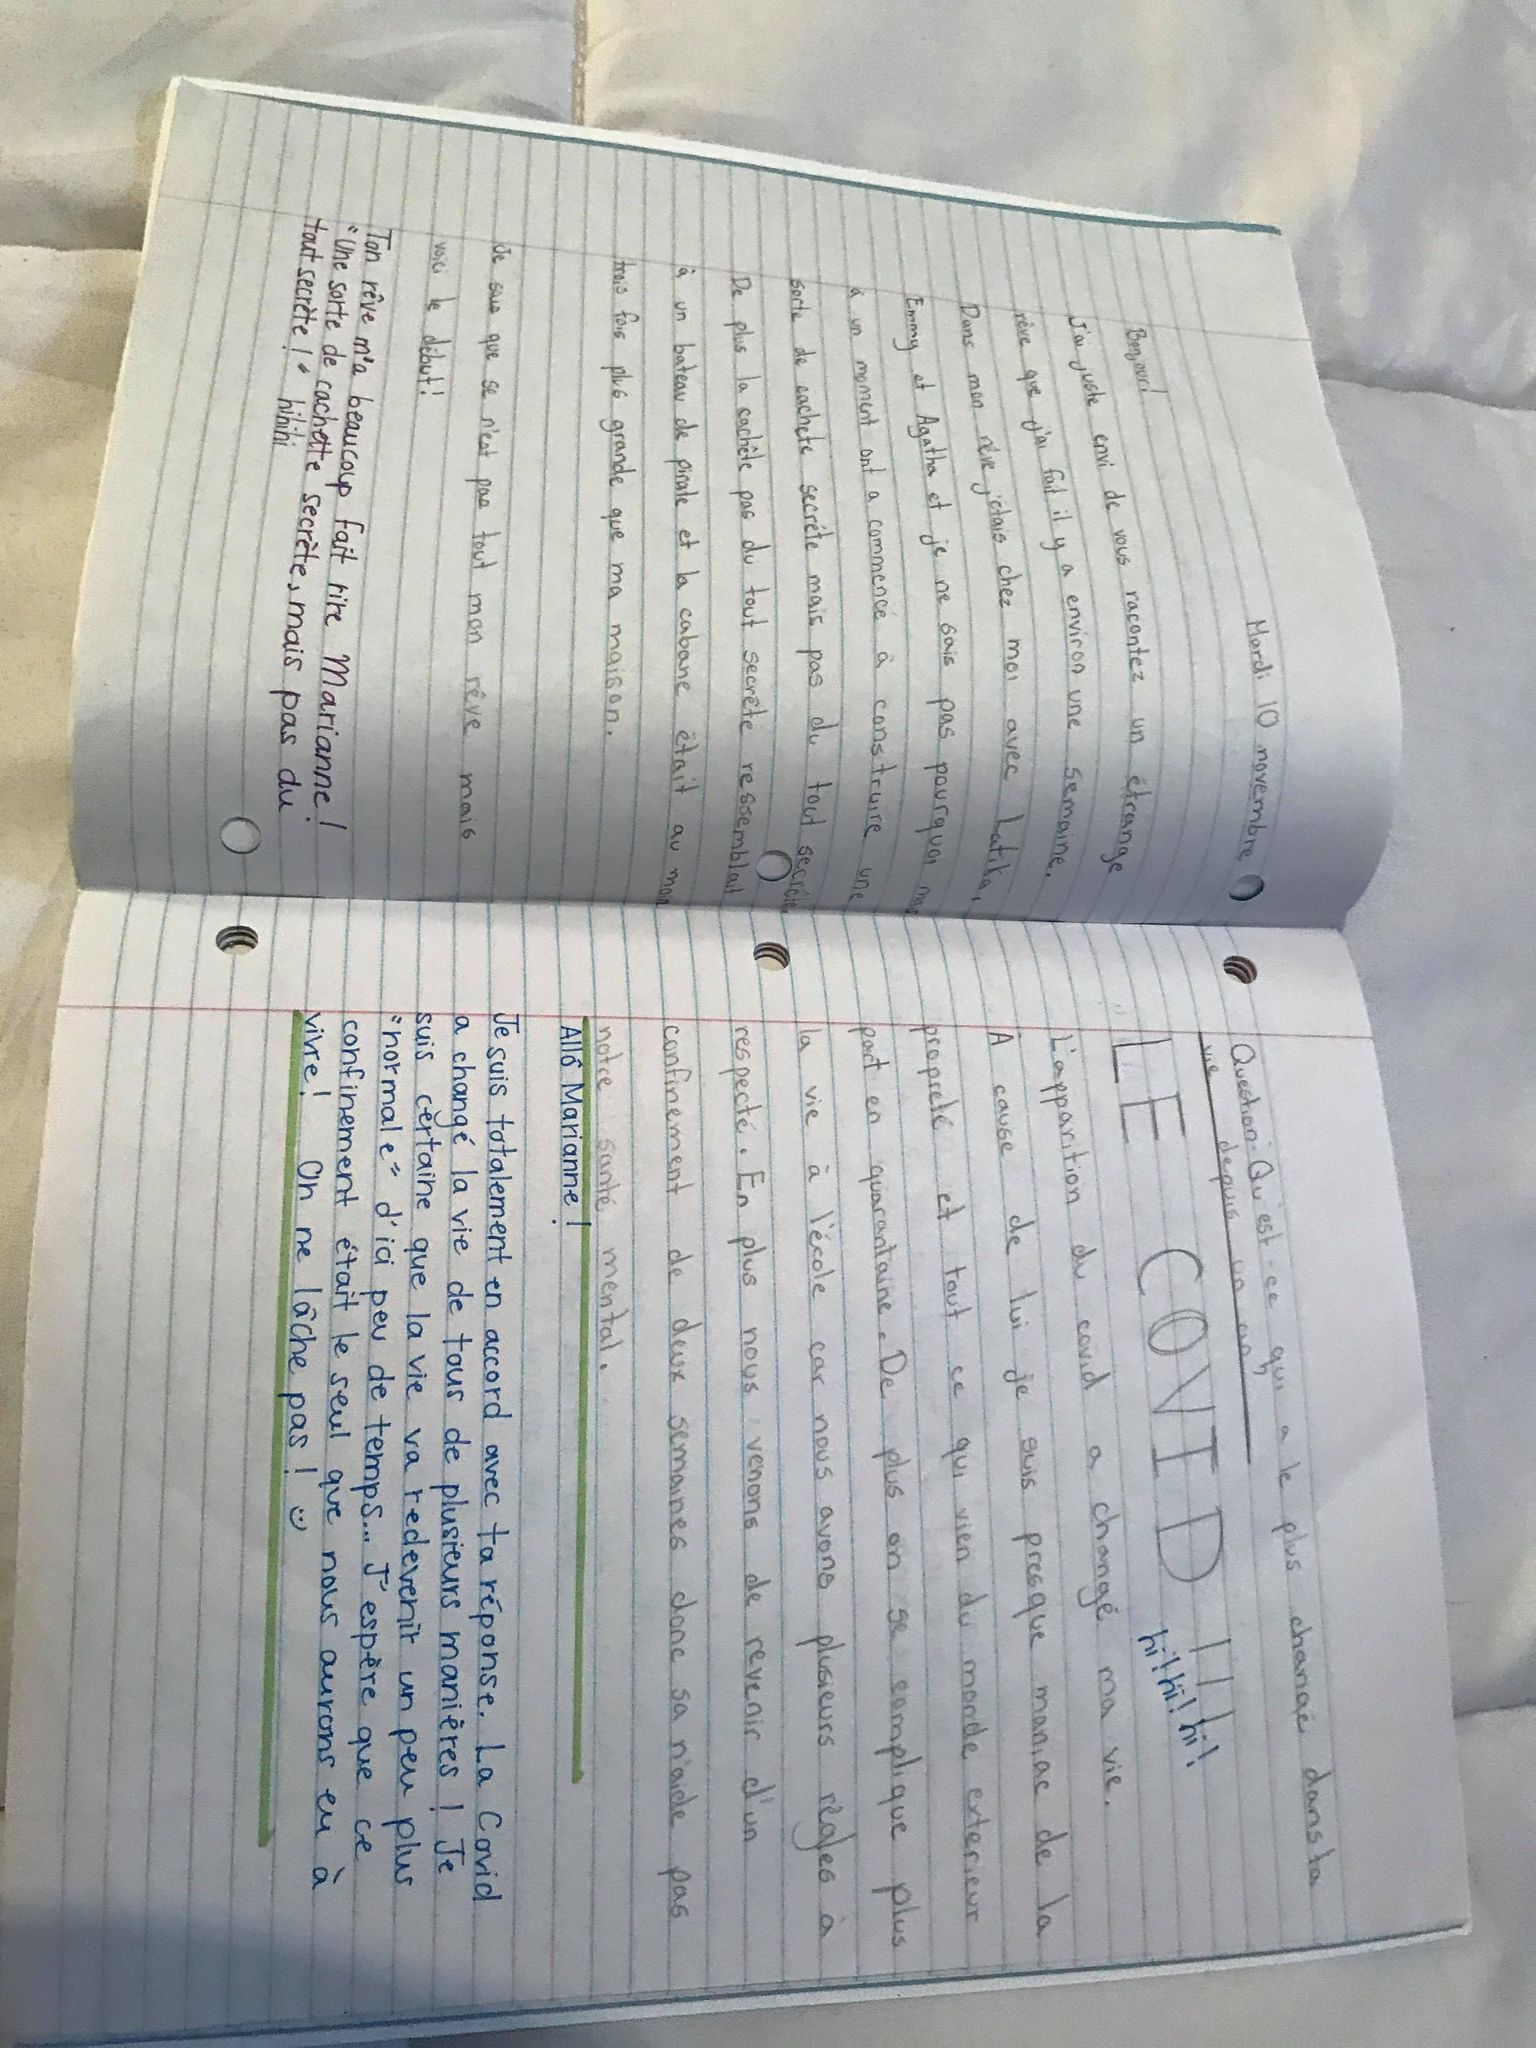 Mardi 10 novembre
Bonjour!
J'ai juste envi de vous racontez un étrange
rêve que j'ai fait il y a environ une semaine.
Dans mon rêve j'étais chez moi avec Latika,
Emmy et Agatha et je ne sais pas pourquoi mais
à un moment ont a commencé à construire une
sorte de cachete secrète mais pas du tout secrète.
De plus la cachète pas du tout secrète ressemblait
à un bateau de pirate et la cabane était au mon
trois fois plus grande que ma maison.
Je sais que se n'est pas tout mon rêve mais
voici le début!
Ton rêve m'a beaucoup fait rire Marianne!
"Une sorte de cachette secrète, mais pas du
tout secrète!" hihihi
Question: Qu'est-ce qui a le plus changé dans ta
vie depuis un an?
LE COVID!!
hi! hi! hi!
L'apparition du covid a changé ma vie.
À cause de lui je suis presque maniac de la
propreté et tout ce qui vien du monde exterieur
part en quarantaine. De plus on se complique plus
la vie à l'école car nous avons plusieurs règles à
respecté. En plus nous venons de revenir d'un
confinement de deux semaines donc sa n'aide pas
notre santé mental.
Allô Marianne!
Je suis totalement en accord avec ta réponse. La Covid
a changé la vie de tous de plusieurs manières! Je
suis certaine que la vie va redevenir un peu plus
"normale" d'ici peu de temps... J'espère que ce
confinement était le seul que nous aurons eu à
vivre! On ne lâche pas! :)